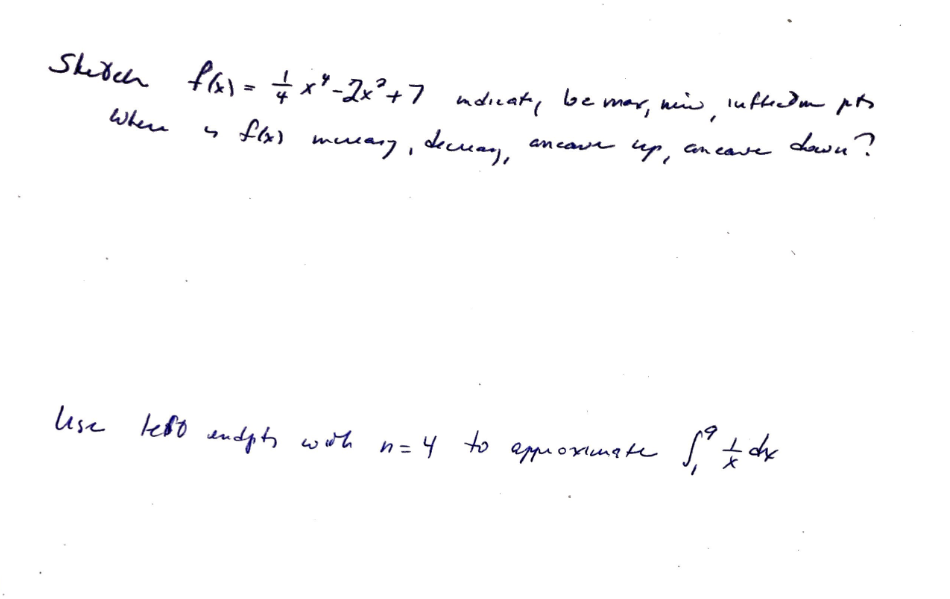 Sketch f(x) = 1/4 x⁴ - 2x² + 7 indicating loc max, min, inflection pts
Where is f(x) increasing, decreasing, concave up, concave down?
Use left endpts with n = 4 to approximate ∫₁⁹ 1/x dx